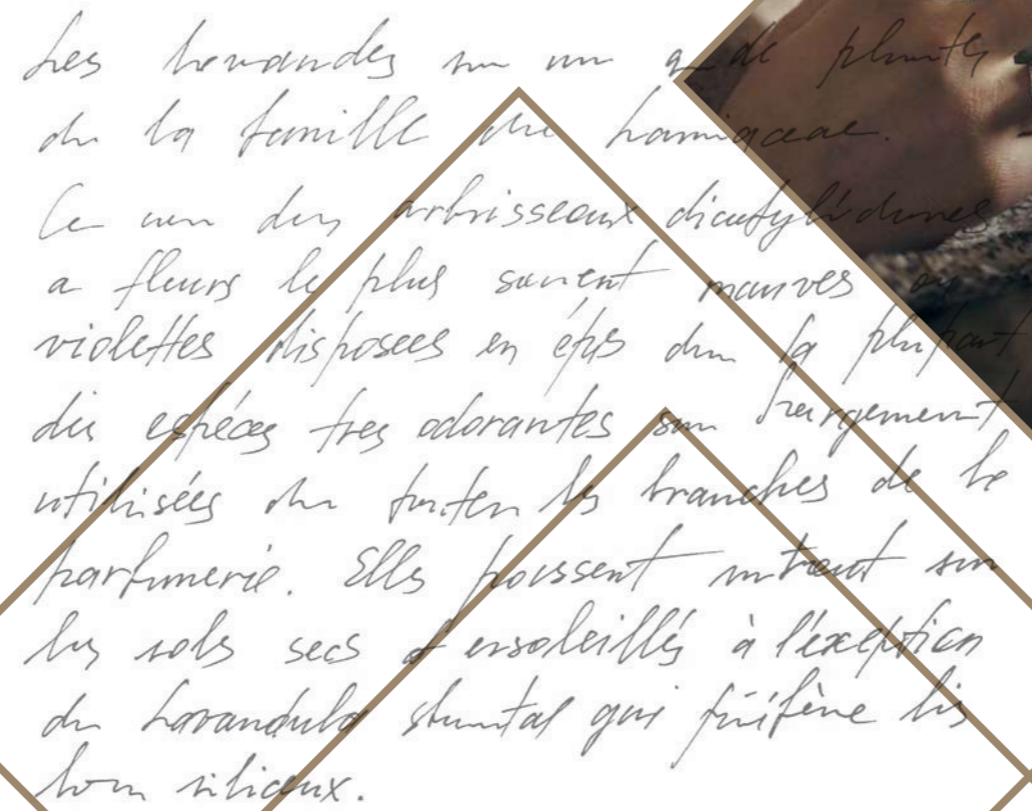 Les lavandes
de la famille des Lamiaceae.
Ce sont des arbrisseaux dicotylédones
a fleurs le plus souvent mauves ou
violettes disposees en épis dans la plupart
des espéces tres odorantes sont largement
utilisées dans toutes les branches de la
parfumerie. Elles poussent surtout sur
les sols secs et ensoleillés à l'exception
du Lavandula qui préfère les
siliceux.